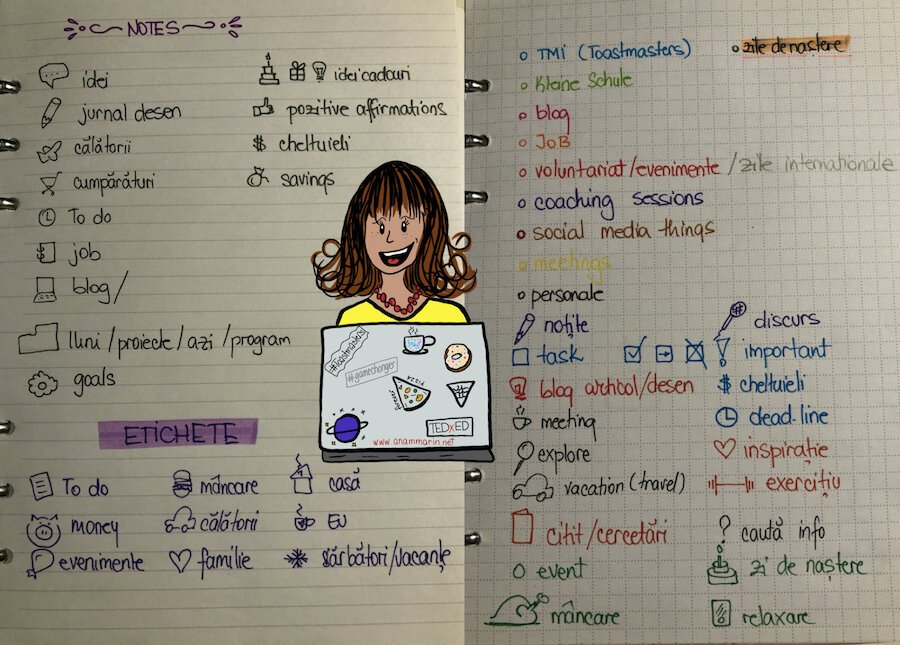 NOTES
idei
jurnal desen
călătorii
cumpărături
To do
job
blog/
luni/proiecte/azi/program
goals
idei cadouri
pozitive affirmations
$ cheltuieli
savings
#toastmasters
#gamechanger
PIZZA
TEDxED
www.anammarin.net
ETICHETE
To do
mâncare
casă
money
călătorii
EU
evenimente
familie
sărbători/vacanțe
TMI (Toastmasters)
zile de naștere
Kleine Schule
blog
JOB
voluntariat/evenimente/zile internationale
coaching sessions
social media things
meetings
personale
notițe
discurs
task
! important
blog archool/desen
$ cheltuieli
meeting
dead-line
explore
inspirație
vacation (travel)
exercițiu
citit/cercetări
? caută info
event
zi de naștere
mâncare
relaxare